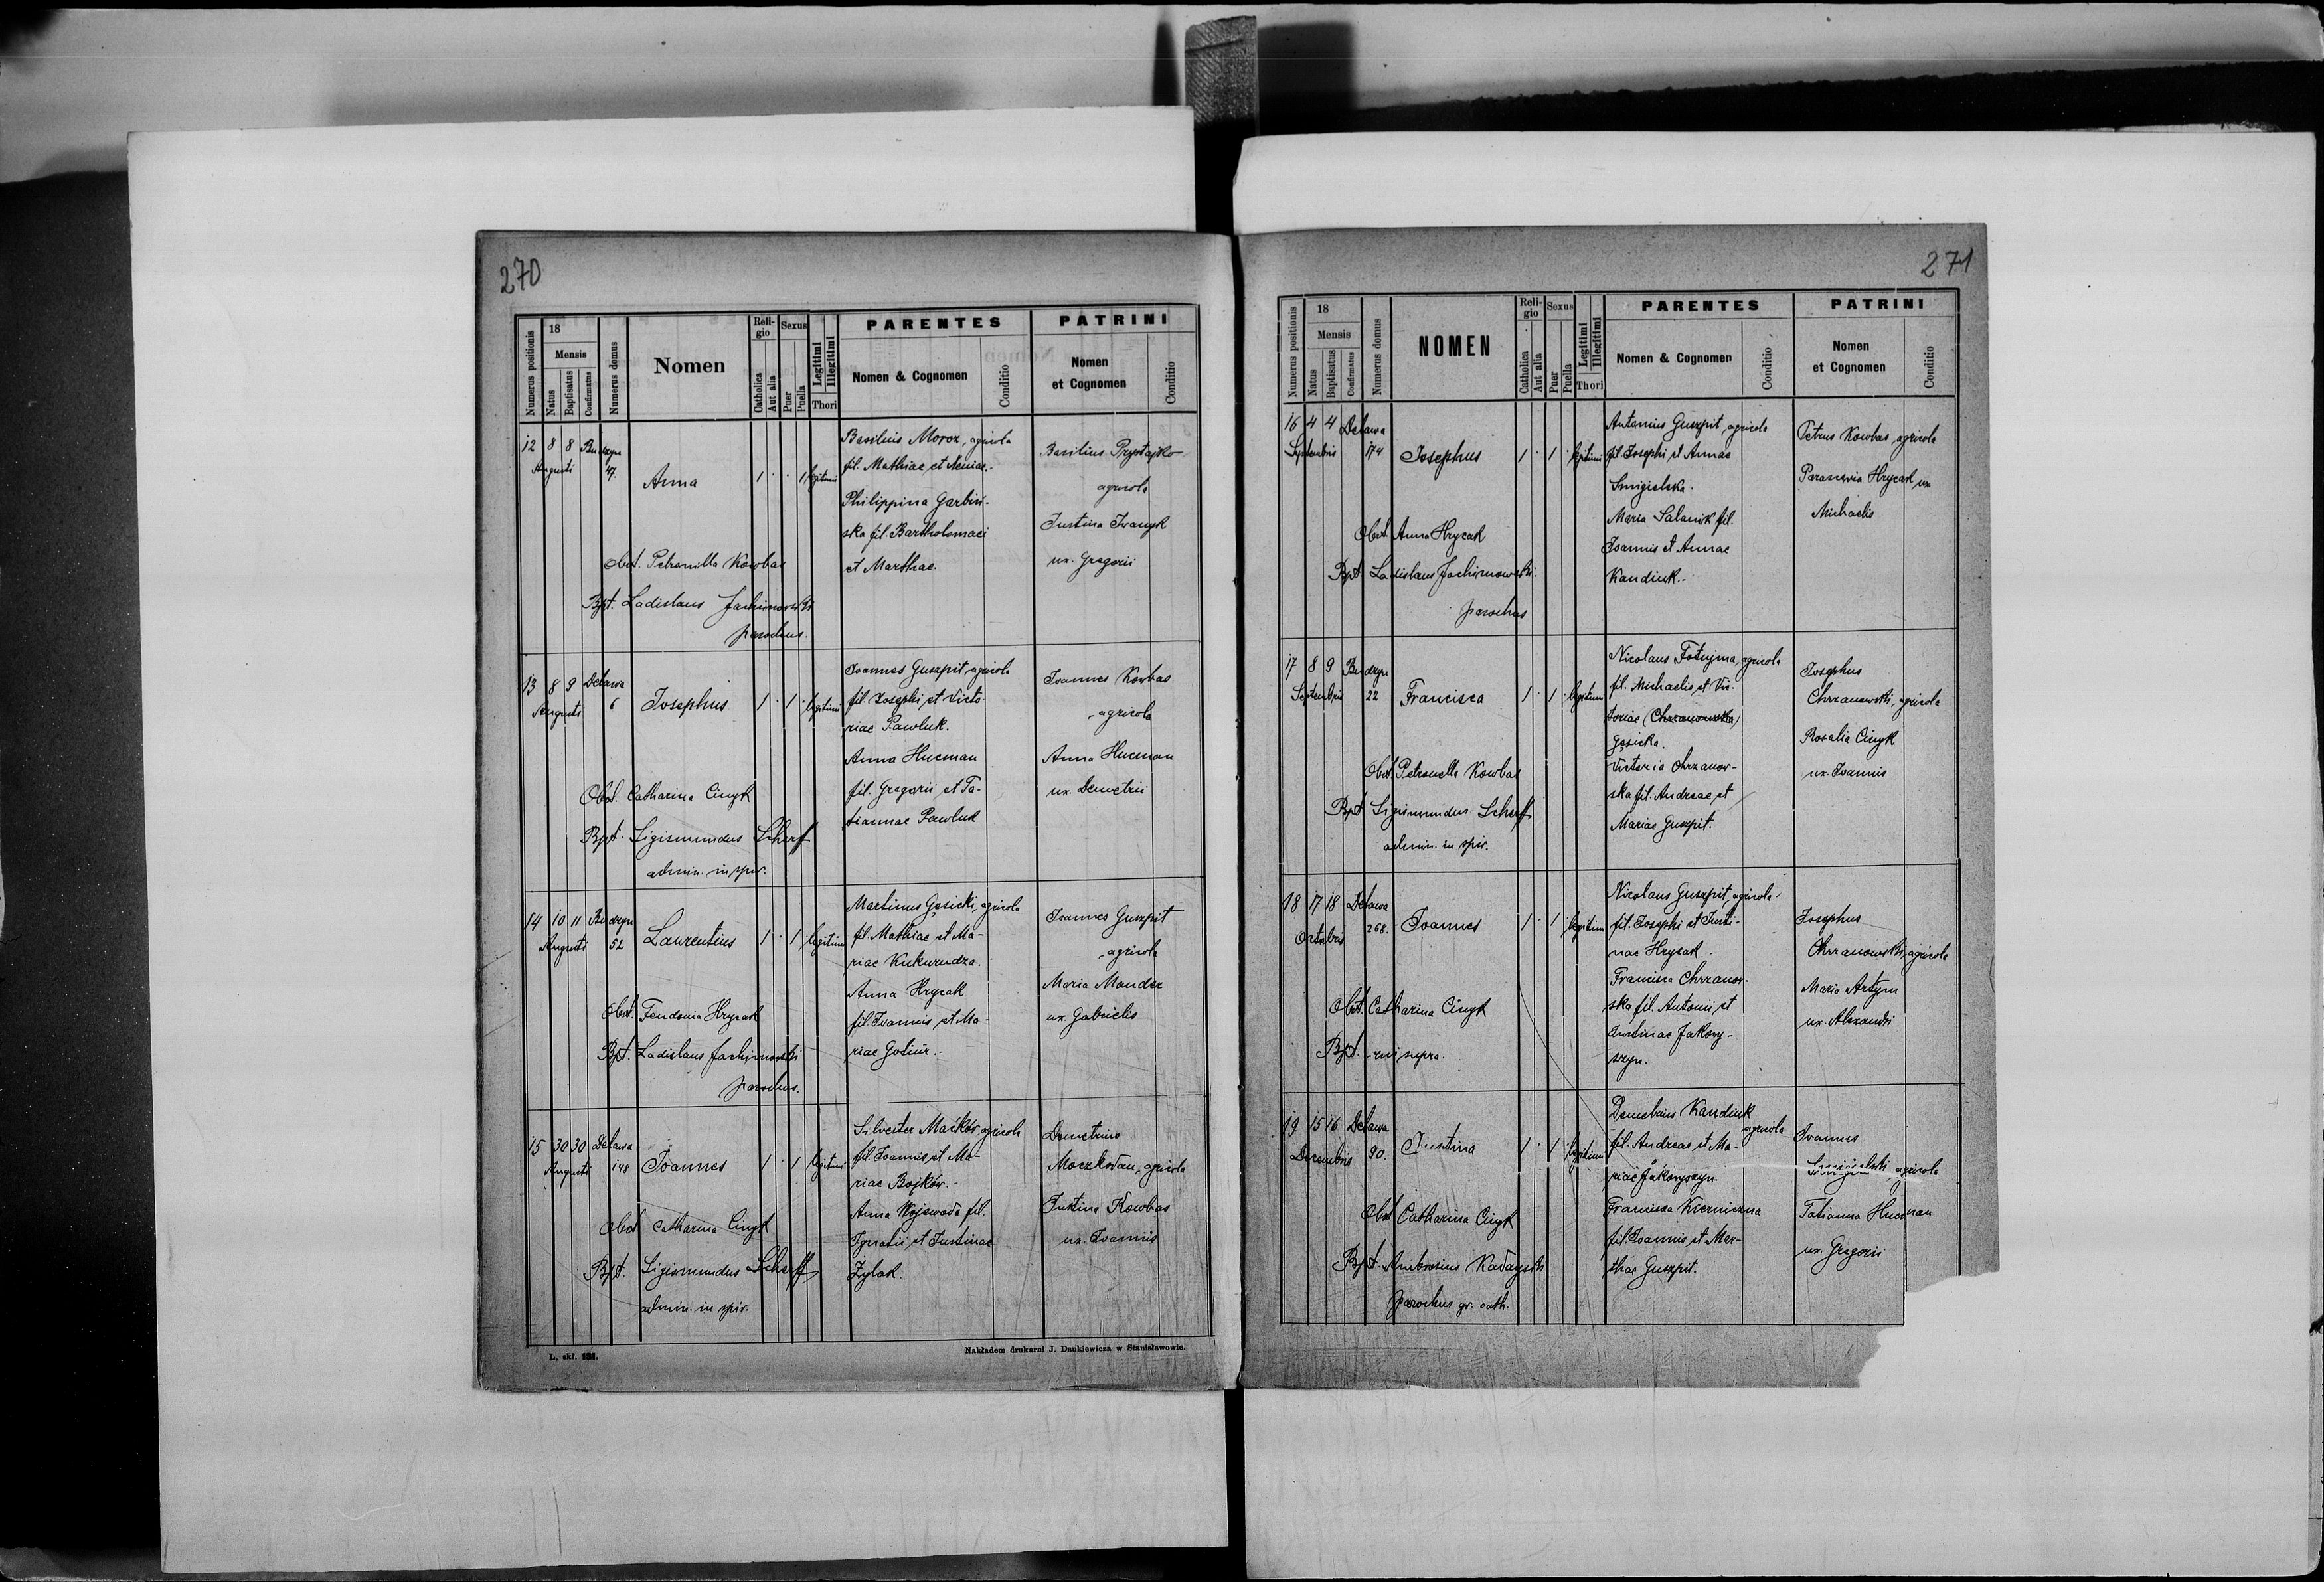 270
Numerus positionis
18
Mensis
Natus
Baptisatus
Confirmatus
Numerus domus
Nomen
Religio
Catholica
Aut alia
Sexus
Puer
Puella
Legitimi
Illegitimi
Thori
PARENTES
Nomen & Cognomen
Conditio
PATRINI
Nomen
et Cognomen
Conditio
12 8 8 Budzyn
Augusti 47.
Anna
1 1 legitimi
Basilius Moroz, agricola
fil. Mathiae et Xeniae.
Philippina Garbiń-
ska fil. Bartholomaei
et Marthae.
Basilius Prystajko
agricola
Justina Iwanyk
ux. Gregorii
Obst. Petronilla Kowbas
Bpt. Ladislaus Jachimowski
parochus.
13 8 9 Delawa
Augusti 6
Josephus
1 1 legitimi
Joannes Guszpit, agricola
fil. Josephi et Victo-
riae Pawluk.
Anna Hucman
fil. Gregorii et Ta-
tiannae Pawluk
Joannes Kowbas
agricola
Anna Hucman
ux. Demetrii
Obst. Catharina Cinyk
Bpt. Sigismundus Scherff
admin. in spir.
14 10 11 Budzyn
Augusti 52
Laurentius
1 1 legitimi
Martinus Gęsicki, agricola
fil. Mathiae et Ma-
riae Kukurudza.
Anna Hrycak
fil. Joannis et Ma-
riae
Joannes Guszpit
agricola
Maria Mandzr
ux. Gabrielis
Obst. Hrycak
Bpt. Ladislaus Jachimowski
parochus.
15 30 30 Delawa
Augusti 148
Joannes
1 1 legitimi
Silvester Maćków agricola
fil. Joannis et Ma-
riae Bojków.
Anna Wojewoda fil.
Ignatii et Justinae
Żylak.
Demetrius
Moczkodan, agricola
Justina Kowbas
ux. Joannis
Obst Catharina Cinyk
Bpt. Sigismundus Scherff
admin. in spir.
L. skł. 131.
Nakładem drukarni J. Dankiewicza w Stanisławowie.
271
Numerus positionis
18
Mensis
Natus
Baptisatus
Confirmatus
Numerus domus
NOMEN
Religio
Catholica
Aut alia
Sexus
Puer
Puella
Legitimi
Illegitimi
Thori
PARENTES
Nomen & Cognomen
Conditio
PATRINI
Nomen
et Cognomen
Conditio
16 4 4 Delawa
Septembris 174
Josephus
1 1 legitimi
Antonius Guszpit, agricola
fil. Josephi et Annae
Smigielska.
Maria Salamik fil.
Joannis et Annae
Kandiuk.
Petrus Kowbas, agricola
Paraxevia Hrycak ux.
Michaelis
Obst. Anna Hrycak
Bpt. Ladislaus Jachimowski.
parochus
17 8 9 Budzyn
Septembris 22
Francisca
1 1 legitimi
Nicolaus Fotujma, agricola
fil. Michaelis et Vic-
toriae (Chrzanowska)
Gęsicka.
Victoria Chrzanow-
ska fil. Andreae et
Mariae Guszpit.
Josephus
Chrzanowski, agricola
Rosalia Cinyk
ux. Joannis
Obst. Petronella Kowbas
Bpt Sigismundus Scherff
admin. in spir.
18 17 18 Delawa
Octobris 268.
Joannes
1 1 legitimi
Nicolaus Guszpit, agricola
fil. Josephi et Justi-
nae Hrycak.
Francisca Chrzanow-
ska fil. Antonii et
Justinae Jakowy-
szyn.
Josephus
Chrzanowski, agricola
Maria Artym
ux. Alexandri
Obst. Catharina Cinyk
Bpt. uti supra.
19 15 16 Delawa
Decembris 90.
Justina
1 1 legitimi
Demetrius Kandiuk
agricola
fil. Andreae et Ma-
riae Jakowyszyn.
Francisca Kierniczna
fil. Joannis et Mar-
thae Guszpit.
Joannes
Smigielski, agricola
Tatianna Hucman
ux. Gregorii
Obst Catharina Cinyk
Bpt. Ambrosius
parochus gr. cath.